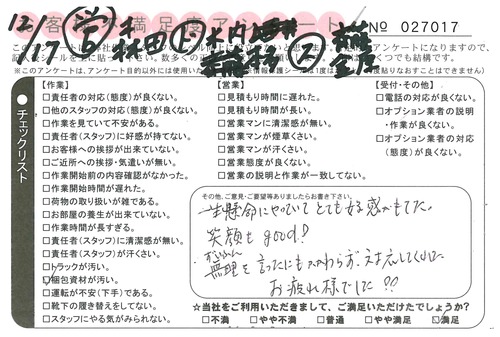 お客様満足度アンケート
№ 027017
12/17
チェックリスト
【作業】
□責任者の対応(態度)が良くない。
□他のスタッフの対応(態度)が良くない。
□作業を見ていて不安がある。
□責任者(スタッフ)に好感が持てない。
□お客様への挨拶が出来ていない。
□ご近所への挨拶・気遣いが無い。
□作業開始前の内容確認がなかった。
□作業開始時間が遅れた。
□荷物の取り扱いが雑である。
□お部屋の養生が出来ていない。
□作業時間が長すぎる。
□責任者(スタッフ)に清潔感が無い。
□責任者(スタッフ)が汗くさい。
□トラックが汚い。
□梱包資材が汚い。
□運転が不安(下手)である。
□靴下の履き替えをしてない。
□スタッフにやる気がみられない。
【営業】
□見積もり時間に遅れた。
□見積もり時間が長い。
□営業マンに清潔感が無い。
□営業マンが煙草くさい。
□営業マンが汗くさい。
□営業態度が良くない。
□営業の説明と作業が一致してない。
【受付・その他】
□電話の対応が良くない。
□オプション業者の説明・作業が良くない。
□オプション業者の対応(態度)が良くない。
その他、ご意見・ご要望等ありましたらお書き下さい。
一生懸命にやっていてとても好感がもてた。
笑顔も good!
無理を言ったにもかかわらず、対応してくれて
お疲れ様でした!!
☆当社をご利用いただきまして、ご満足いただけたでしょうか?
□不満 □やや不満 □普通 □やや満足 □満足